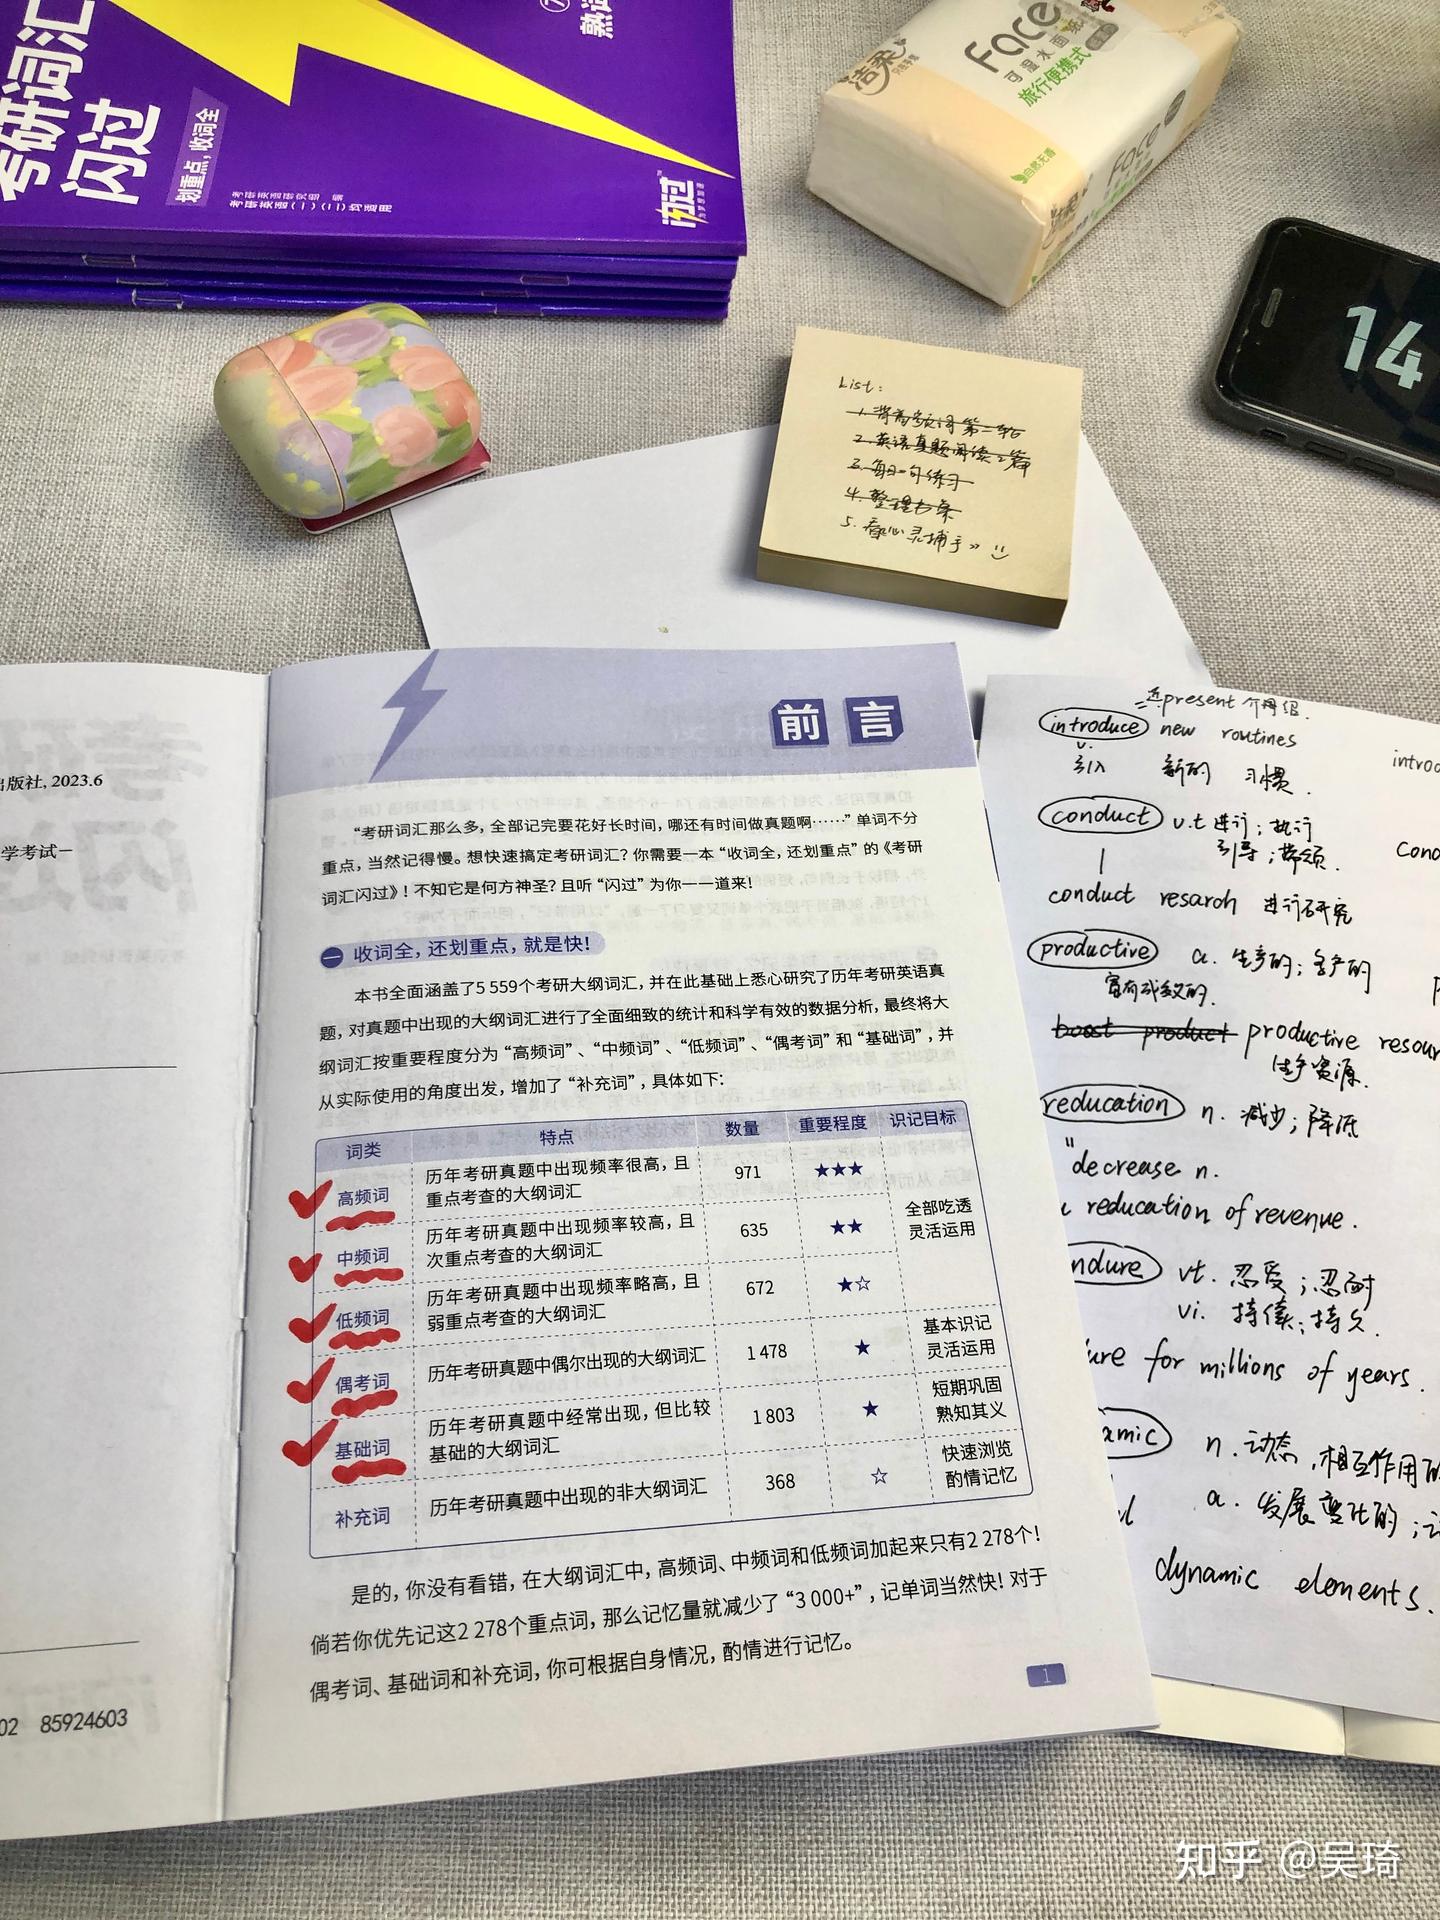 考研词汇
闪过
划重点，收词全
考研英语研究组 编
考研英语(一)(二)均适用
闪过
洁柔
Face
可湿水面纸
旅行便携式
自然无香
Face
14
List:
1. 背高频词第二轮
2. 英语真题阅读2篇
3. 每日一句练习
4. 整理书桌
5. 看心灵捕手
出版社, 2023.6
学考试－
02 85924603
前言
“考研词汇那么多，全部记完要花好长时间，哪还有时间做真题啊……” 单词不分
重点，当然记得慢。想快速搞定考研词汇？你需要一本 “收词全，还划重点” 的《考研
词汇闪过》！不知它是何方神圣？且听 “闪过” 为你一一道来！
一 收词全，还划重点，就是快！
本书全面涵盖了5 559个考研大纲词汇，并在此基础上悉心研究了历年考研英语真
题，对真题中出现的大纲词汇进行了全面细致的统计和科学有效的数据分析，最终将大
纲词汇按重要程度分为 “高频词”、“中频词”、“低频词”、“偶考词” 和 “基础词”，并
从实际使用的角度出发，增加了 “补充词”，具体如下：
词类 特点 数量 重要程度 识记目标
高频词 历年考研真题中出现频率很高，且
重点考查的大纲词汇 971 ★★★
中频词 历年考研真题中出现频率较高，且
次重点考查的大纲词汇 635 ★★ 全部吃透
灵活运用
低频词 历年考研真题中出现频率略高，且
弱重点考查的大纲词汇 672 ★☆
偶考词 历年考研真题中偶尔出现的大纲词汇 1 478 ★ 基本识记
灵活运用
基础词 历年考研真题中经常出现，但比较
基础的大纲词汇 1 803 ★ 短期巩固
熟知其义
补充词 历年考研真题中出现的非大纲词汇 368 ☆ 快速浏览
酌情记忆
是的，你没有看错，在大纲词汇中，高频词、中频词和低频词加起来只有2 278个！
倘若你优先记这2 278个重点词，那么记忆量就减少了 “3 000+”，记单词当然快！对于
偶考词、基础词和补充词，你可根据自身情况，酌情进行记忆。
1
present 介绍
introduce new routines
v.
引入 新的 习惯.
introd
conduct v.t 进行；执行
引导；带领
cond
conduct resaroh 进行研究
productive a. 生产的；多产的
富有成效的.
boost product productive resour
生产资源.
reducation n. 减少；降低
"decrease n.
reducation of revenue.
ndure vt. 忍受；忍耐
vi. 持续；持久.
ure for millions of years.
amic n. 动态，相互作用的
a. 发展变化的；
dynamic elements.
知乎 @吴琦